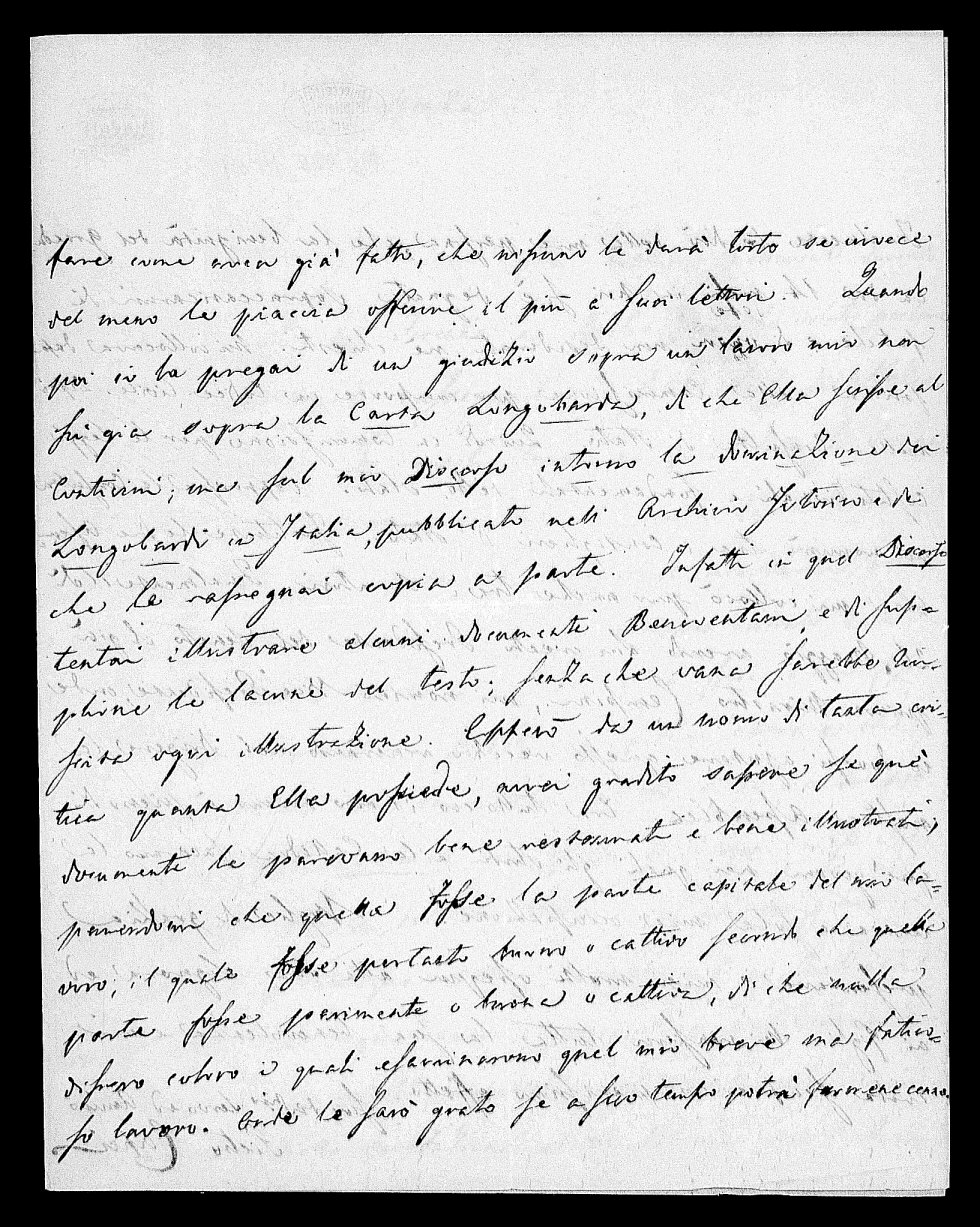 fare come avea già fatto, che nissuno le darà torto se invece
del meno le piaccia offerire il più a suoi lettori. Quando
poi io la pregai di un giudizio sopra un lavoro mio non
fu già sopra la Carta Longobarda, di che Ella scrisse al
; ma sul mio Discorso intorno la dominazione dei
Longobardi in Italia, pubblicato nell' Archivio Istorico e di
che le rassegnai copia a parte. Infatti in quel Discorso
tentai illustrare alcuni documenti Beneventani, e di sup=
plirne le lacune del testo; senza che vana sarebbe riu=
scita ogni illustrazione. Epperò da un uomo di tanta cri=
tica quanta Ella possiede, avrei gradito sapere se que'
documenti le paressero bene restaurati e bene illustrati,
parendomi che quella fosse la parte capitale del mio la=
voro; il quale fosse pertanto buono o cattivo secondo che quella
parte fosse parimente o buona o cattiva, di che nulla
dissero coloro i quali esaminarono quel mio breve ma fatico=
so lavoro. Onde le sarò grato se a suo tempo potrà farmene cenno.